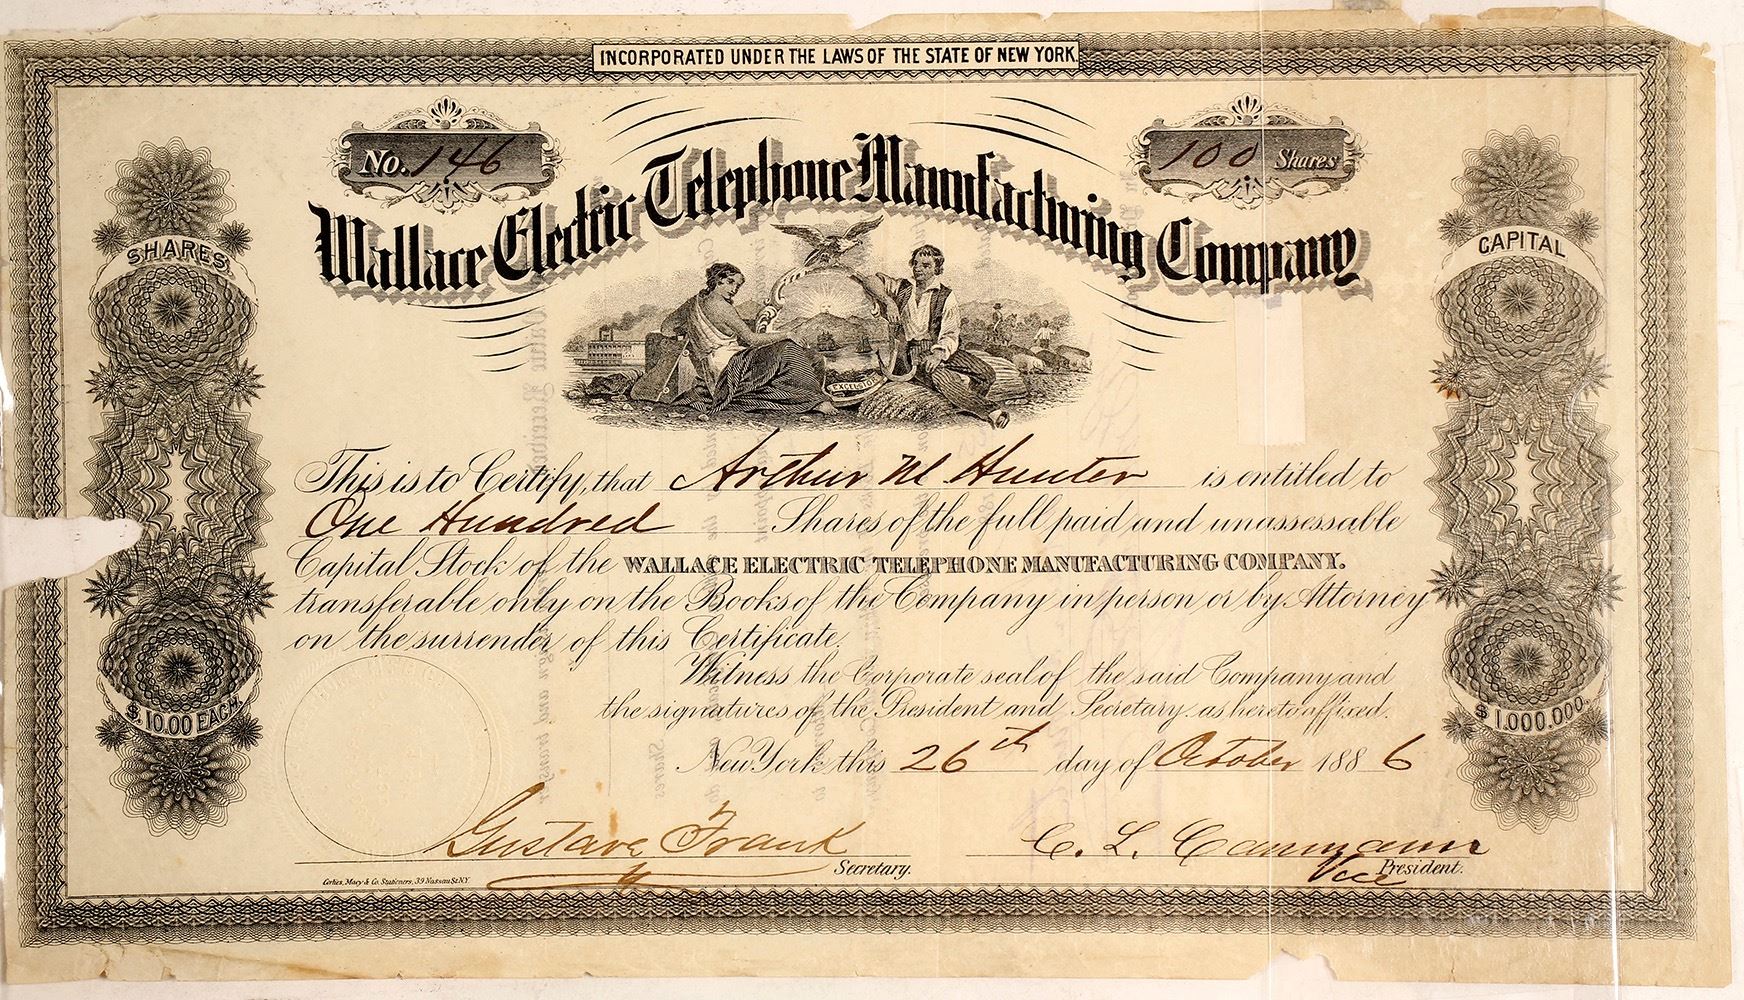 INCORPORATED UNDER THE LAWS OF THE STATE OF NEW YORK.
No. 146
100 Shares
Wallace Electric Telephone Manufacturing Company
SHARES.
CAPITAL
EXCELSIOR
This is to Certify, that Arthur M Hunter is entitled to
One Hundred Shares of the full paid and unassessable
Capital Stock of the WALLACE ELECTRIC TELEPHONE MANUFACTURING COMPANY.
transferable only on the Books of the Company in person or by Attorney
on the surrender of this Certificate.
Witness the Corporate seal of the said Company and
the signatures of the President and Secretary, as hereto affixed.
$.10.00 EACH.
$1.000.000.
New York this 26th day of October 1886
Gustave Frank Secretary.
C. L. Cammann Vice President.
Corlies, Macy & Co. Stationers, 39 Nassau St. N.Y.